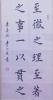 至微之理至著
之事一以貫之